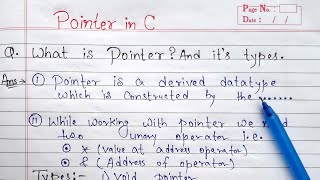 Pointer in C
Page No.:
Date : / /
Q. What is Pointer? And it's types.
Ans → (i) Pointer is a derived datatype
which is constructed by the .......
(ii) While working with pointer we need
two unary operator i.e.
• * (value at address operator)
• & (Address of operator)
Types:- 1) Void pointer